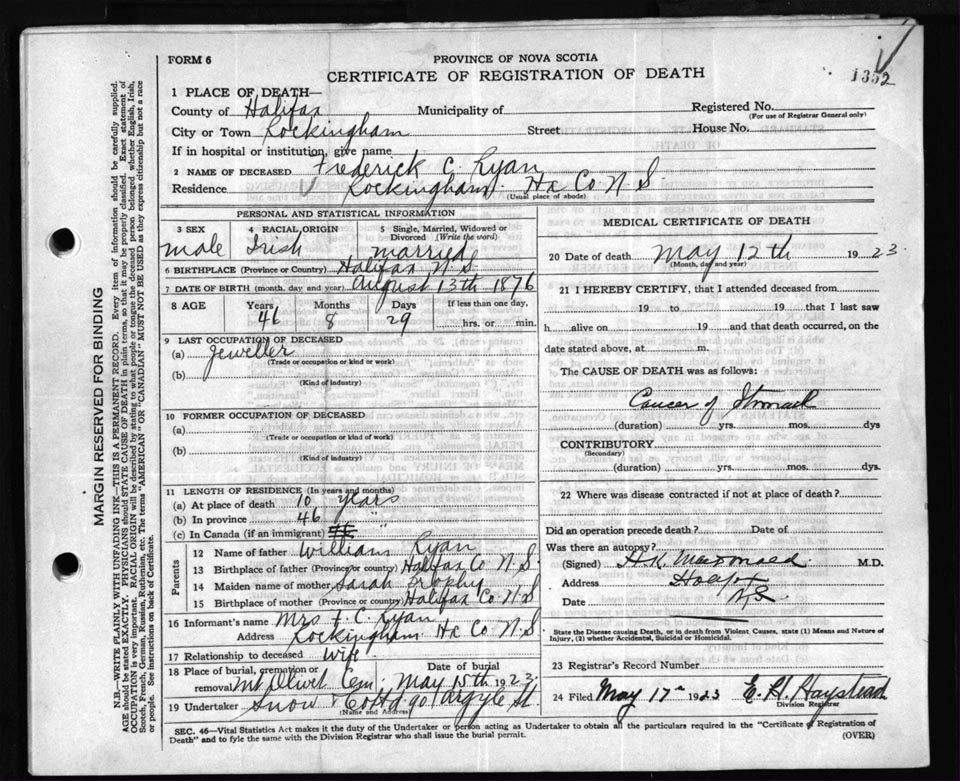 FORM 6
PROVINCE OF NOVA SCOTIA
CERTIFICATE OF REGISTRATION OF DEATH
1352
1 PLACE OF DEATH—
County of Halifax Municipality of Registered No.
(For use of Registrar General only)
City or Town Rockingham Street House No.
If in hospital or institution, give name
2 NAME OF DECEASED Frederick C. Ryan
Residence Rockingham. Ha Co N S.
(Usual place of abode)
PERSONAL AND STATISTICAL INFORMATION
3 SEX 4 RACIAL ORIGIN 5 Single, Married, Widowed or Divorced (Write the word)
male Irish married
6 BIRTHPLACE (Province or Country) Halifax N.S
7 DATE OF BIRTH (month, day and year) august 13th 1876
8 AGE Years Months Days If less than one day,
46 8 29 hrs. or min.
9 LAST OCCUPATION OF DECEASED
(a) jeweller
(Trade or occupation or kind or work)
(b)
(Kind of industry)
10 FORMER OCCUPATION OF DECEASED
(a)
(Trade or occupation or kind of work)
(b)
(Kind of industry)
11 LENGTH OF RESIDENCE (In years and months)
(a) At place of death 10 years
(b) In province 46 "
(c) In Canada (if an immigrant) "
Parents
12 Name of father William Ryan
13 Birthplace of father (Province or country) Halifax Co N. S.
14 Maiden name of mother Sarah Brophy
15 Birthplace of mother (Province or country) Halifax Co N S
16 Informant's name Mrs F. C. Ryan
Address Rockingham Ha Co N S
17 Relationship to deceased wife
18 Place of burial, cremation or removal Mt Olivet Cem. Date of burial May 15th 1923.
19 Undertaker Snow & Co Ltd 90 Argyle St
(Name and Address)
MEDICAL CERTIFICATE OF DEATH
20 Date of death May 12th 1923.
(Month, day and year)
21 I HEREBY CERTIFY, that I attended deceased from
19 to 19 that I last saw
h alive on 19 and that death occurred, on the
date stated above, at m.
The CAUSE OF DEATH was as follows:
Cancer of Stomach
(duration) yrs. mos. dys
CONTRIBUTORY
(Secondary)
(duration) yrs. mos. dys.
22 Where was disease contracted if not at place of death?
Did an operation precede death? Date of
Was there an autopsy?
(Signed) H.K. MacDonald M.D.
Address Halifax
Date N.S.
State the Disease causing Death, or in death from Violent Causes, state (1) Means and Nature of
Injury, (2) whether Accidental, Suicidal or Homicidal.
23 Registrar's Record Number
24 Filed May 17th 1923 E. H. Haystead
Division Registrar
SEC. 46—Vital Statistics Act makes it the duty of the Undertaker or person acting as Undertaker to obtain all the particulars required in the "Certificate of Registration of
Death" and to fyle the same with the Division Registrar who shall issue the burial permit.
(OVER)
MARGIN RESERVED FOR BINDING
N.B.—WRITE PLAINLY WITH UNFADING INK—THIS IS A PERMANENT RECORD. Every item of information should be carefully supplied.
AGE should be stated EXACTLY. PHYSICIANS should STATE CAUSE OF DEATH in plain terms, so that it may be properly classified. Exact statement of
OCCUPATION is very important. RACIAL ORIGIN will be described by stating to what people or tongue the deceased person belonged whether English, Irish,
Scotch, French, German, Russian, Ruthenian, etc. The terms "AMERICAN" OR "CANADIAN" MUST NOT BE USED as they express citizenship but not a race
or people. See instructions on back of Certificate.